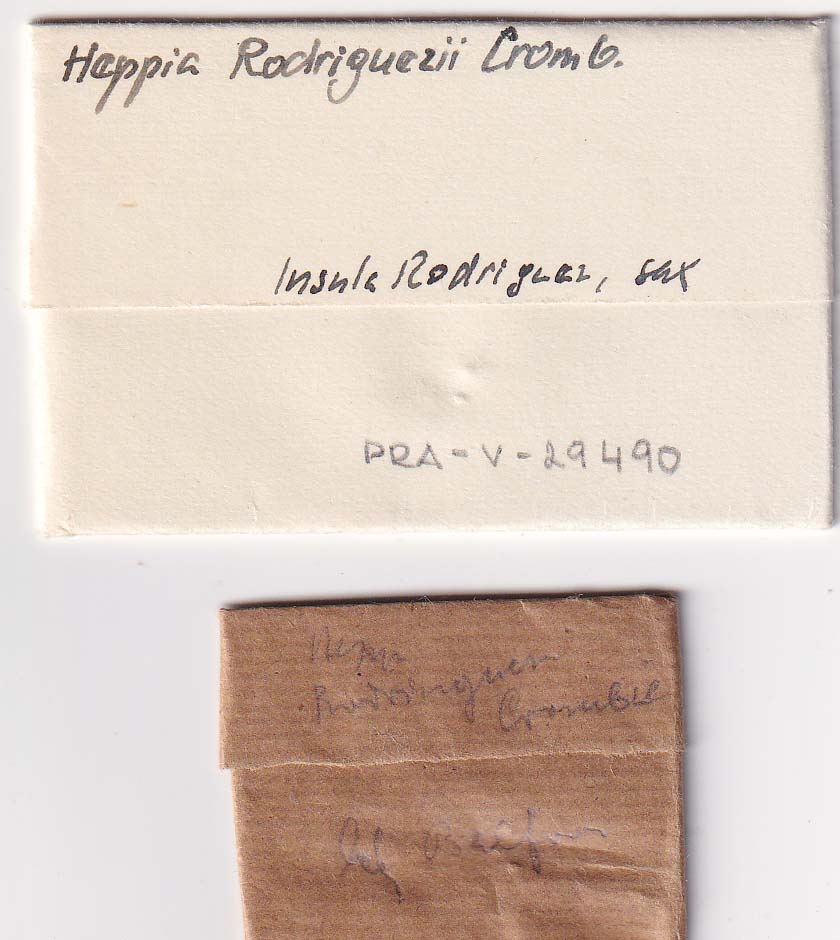 Heppia Rodriguezii Cromb.
Insula Rodriguez, sax
PRA-V-29490
Hepp
Rodriguezii
Crombie
leg Balfour